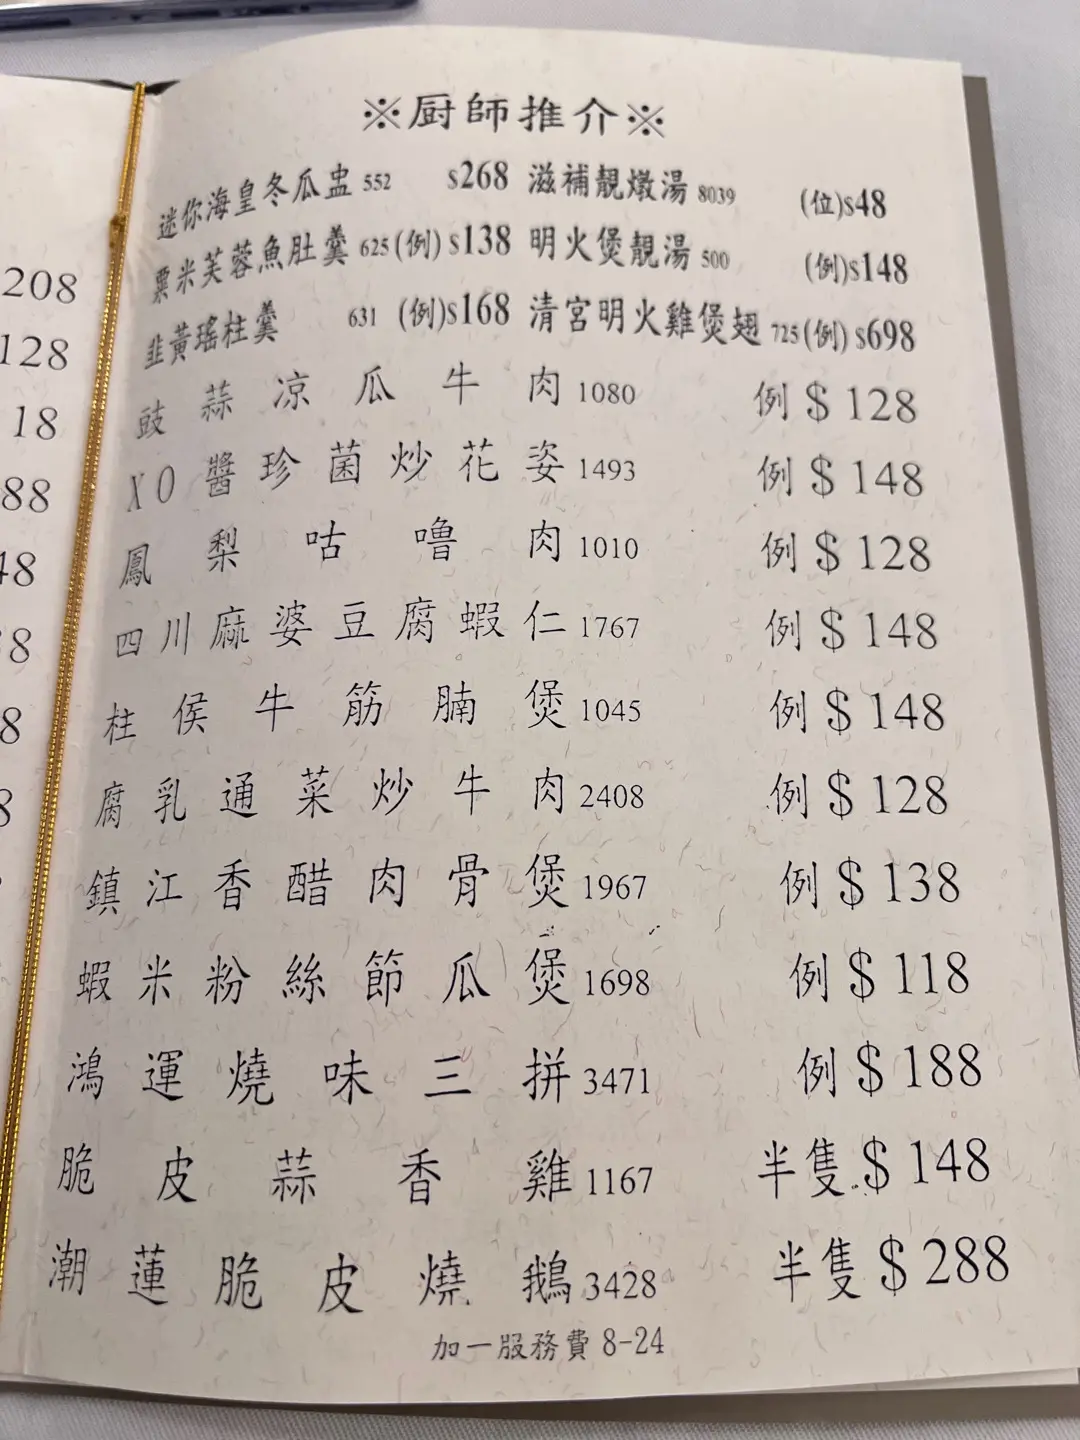 ※厨師推介※
迷你海皇冬瓜盅 552 $268 滋補靚燉湯 8039 (位)$48
粟米芙蓉魚肚羹 625 (例) $138 明火煲靚湯 500 (例)$148
韭黃瑤柱羹 631 (例)$168 清宮明火雞煲翅 725 (例) $698
豉蒜凉瓜牛肉 1080 例 $ 128
XO醬珍菌炒花姿 1493 例 $ 148
鳳梨咕嚕肉 1010 例 $ 128
四川麻婆豆腐蝦仁 1767 例 $ 148
柱侯牛筋腩煲 1045 例 $ 148
腐乳通菜炒牛肉 2408 例 $ 128
鎮江香醋肉骨煲 1967 例 $ 138
蝦米粉絲節瓜煲 1698 例 $ 118
鴻運燒味三拼 3471 例 $ 188
脆皮蒜香雞 1167 半隻 $ 148
潮蓮脆皮燒鵝 3428 半隻 $ 288
加一服務費 8-24
208
128
18
88
48
8
8
8